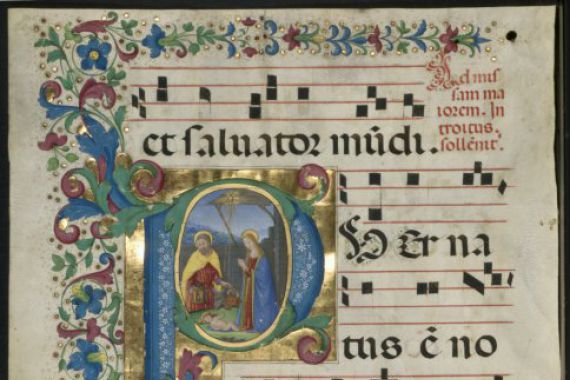 et saluator mūdi.
Ad mis
sam ma
iorem. In
troitus.
sollēnit.
PUEr na
tus ē no